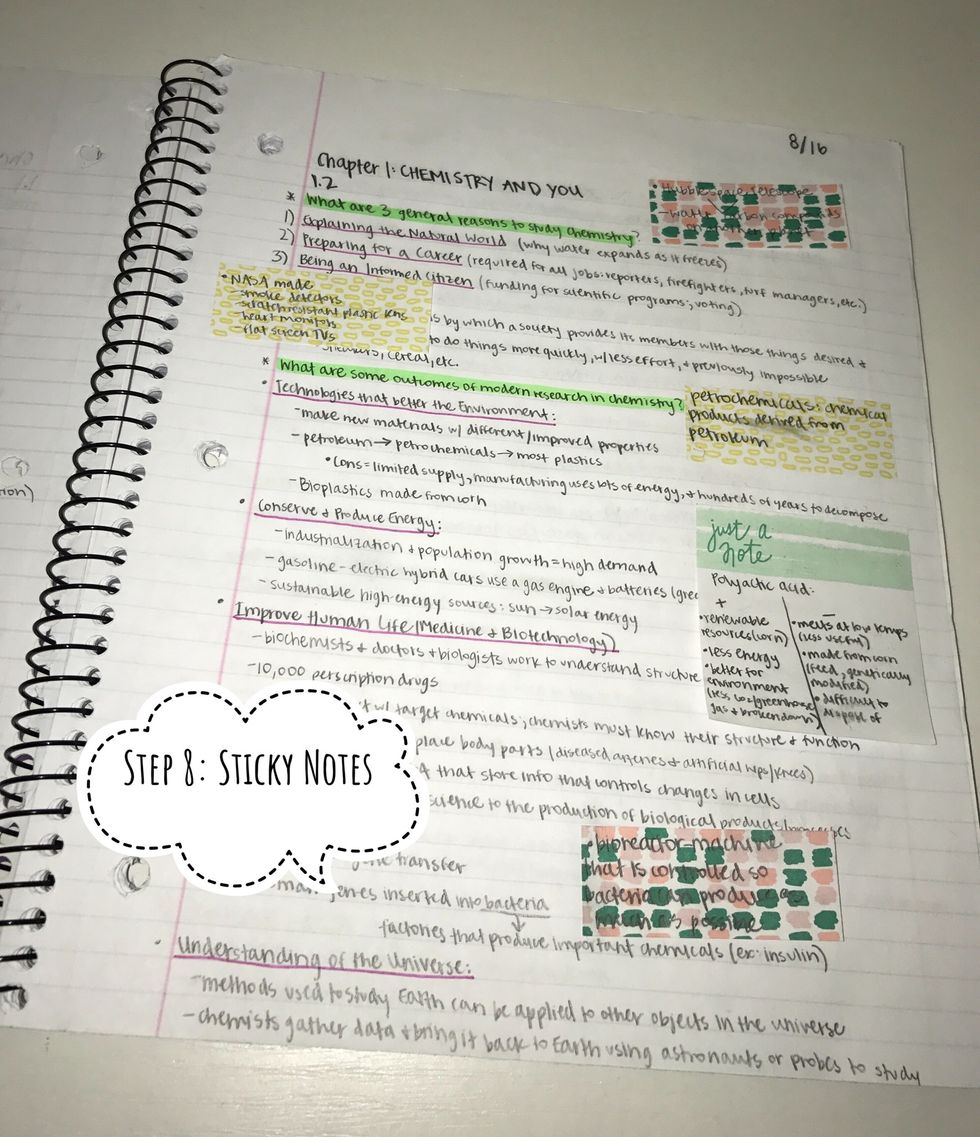 8/16
Chapter 1: CHEMISTRY AND YOU
1.2
* What are 3 general reasons to study chemistry?
1) Explaining the Natural World (why water expands as it freezes)
2) Preparing for a Career (required for all jobs: reporters, firefighters, turf managers, etc.)
3) Being an Informed Citizen (funding for scientific programs; voting)
• Hubble Space Telescope
-water carbon compounds
planet
• NASA made
-smoke detectors
-scratch resistant plastic lens
-heart monitors
-flat screen TVs
s by which a society provides its members with those things desired +
to do things more quickly, w/ less effort, + previously impossible
cereal, etc.
* What are some outcomes of modern research in chemistry?
• Technologies that better the Environment:
-make new materials w/ different/improved properties
-petroleum → petrochemicals → most plastics
• Cons = limited supply, manufacturing uses lots of energy, + hundreds of years to decompose
-Bioplastics made from corn
petrochemicals: chemical
products derived from
petroleum
• Conserve + Produce Energy:
-industrialization + population growth = high demand
-gasoline-electric hybrid cars use a gas engine + batteries (gree
-sustainable high-energy sources: sun → solar energy
just a
note
Polyactic acid:
+
• renewable
resources (corn)
• less energy
• better for
environment
(less CO2/greenhouse
gas + broken down)
-
• melts at low temps
(less useful)
• made from corn
(feed, genetically
modified)
• difficult to
dispose of
• Improve Human Life (Medicine + Biotechnology)
-biochemists + doctors + biologists work to understand structure
-10,000 perscription drugs
w/ target chemicals; chemists must know their structure + function
place body parts (diseased arteries + artificial hips/knees)
A that store info that controls changes in cells
science to the production of biological products/
STEP 8: STICKY NOTES
ne transfer
genes inserted into bacteria
↓
factories that produce important chemicals (ex: insulin)
• bioreactor-machine
that is controlled so
bacteria can produce as
much as possible
• Understanding of the Universe:
-methods used to study Earth can be applied to other objects in the universe
-chemists gather data + bring it back to Earth using astronauts or probes to study